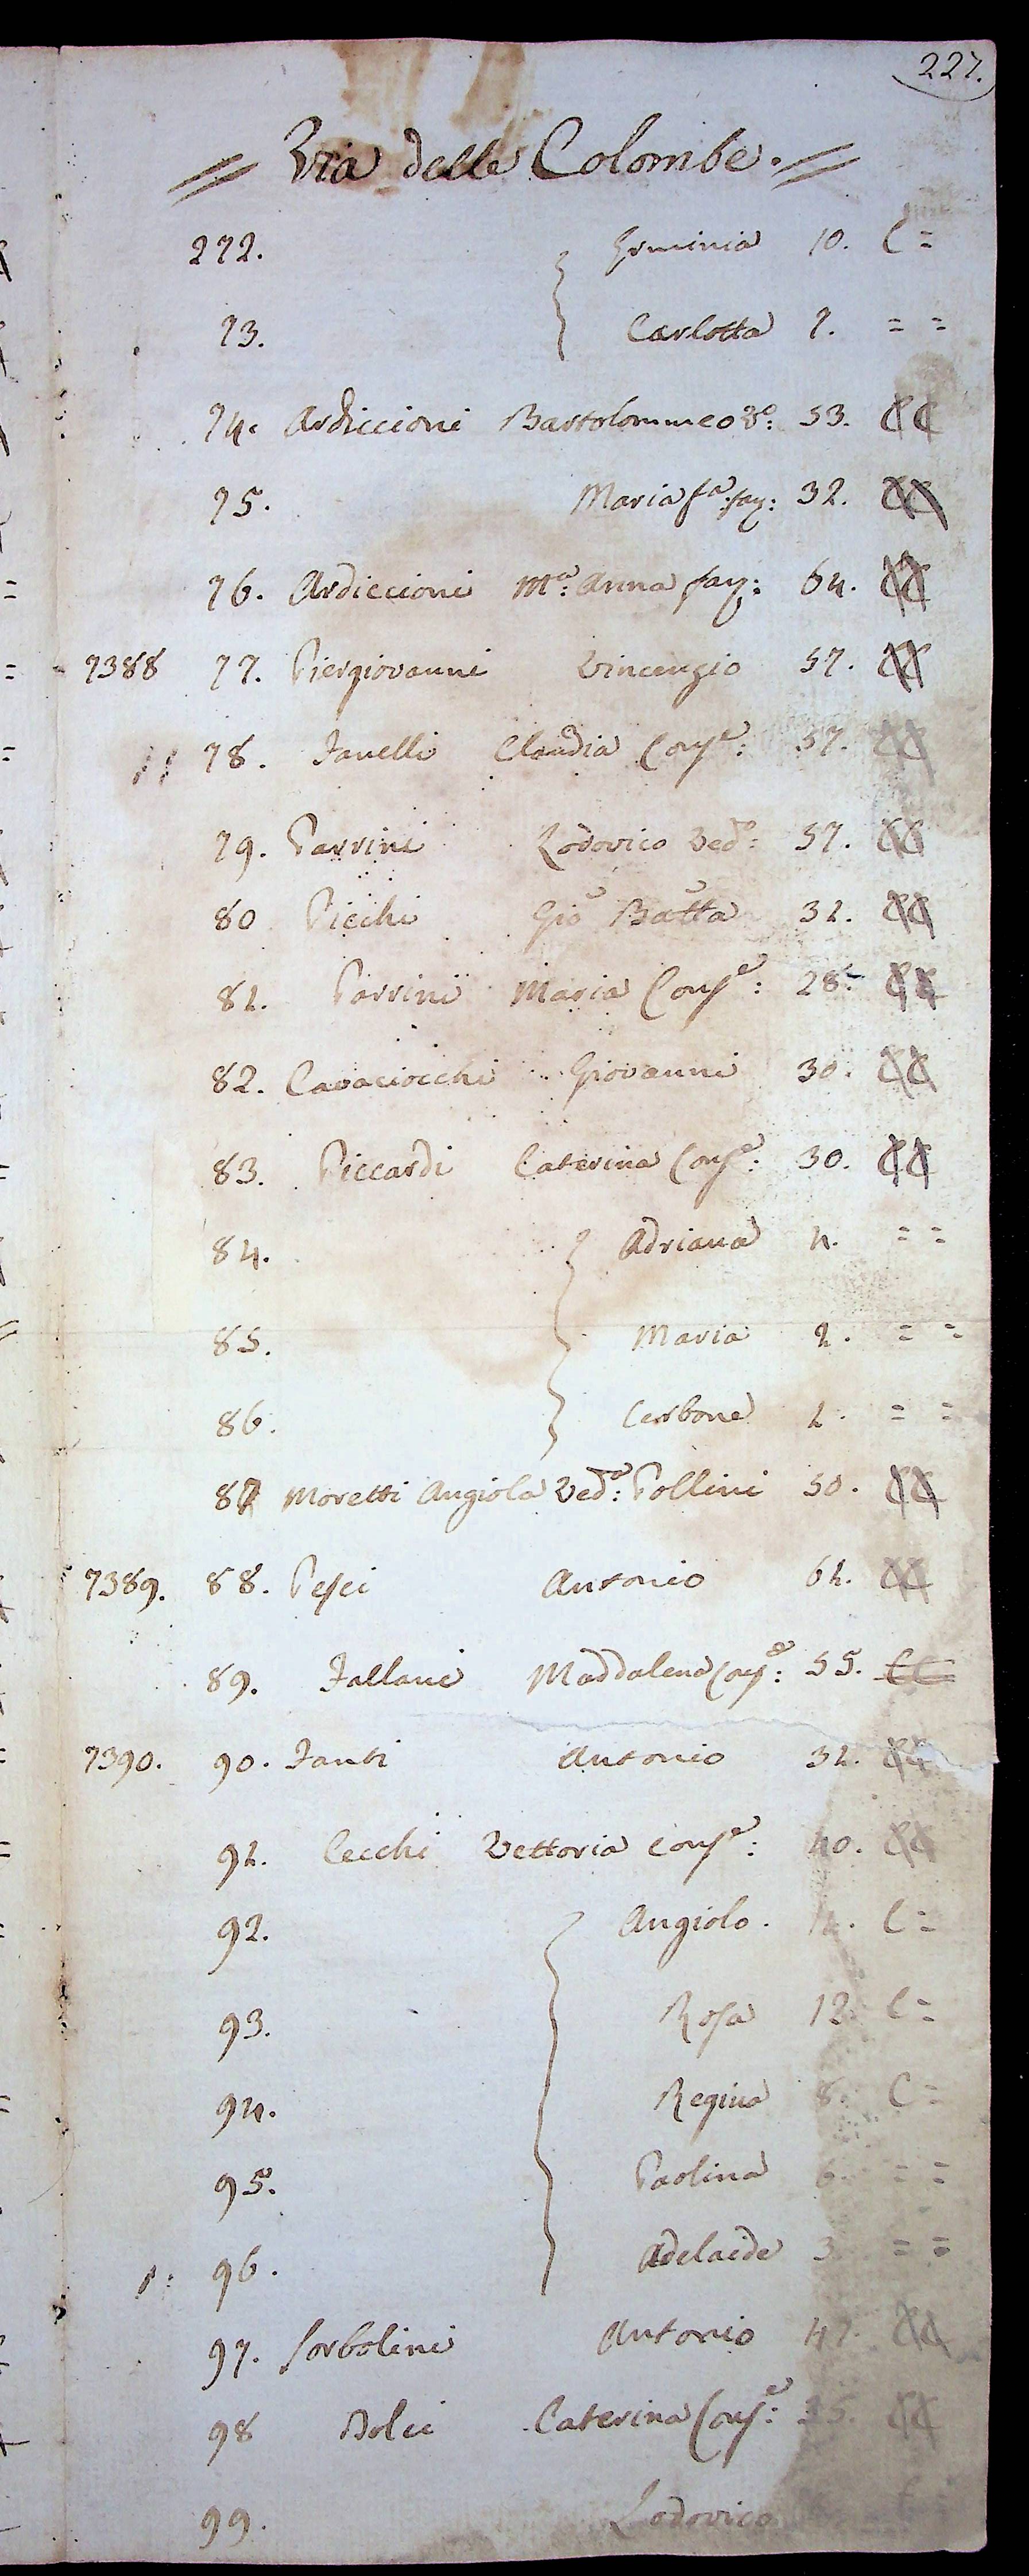 227.
= Via delle Colombe. =
272. Erminia 10. C =
73. Carlotta 7. = =
74. Ardiccioni Bartolommeo Vo: 53. CC
75. Maria fa: 32. CC
76. Ardiccioni Ma: Anna 64. CC
7388 77. Piergiovanni Vincenzio 57. CC
78. Fanelli Claudia Conse: 57. CC
79. Parrini Lodovico Vedo: 57. CC
80 Picchi Gio Batta 31. CC
81. Parrini Maria Conse: 28. CC
82. Cavaciocchi Giovanni 30. CC
83. Piccardi Caterina Conse: 30. CC
84. Adriana 4. = =
85. Maria 2. = =
86. Cerbone 1. = =
87 Moretti Angiola Veda: Pollini 50. CC
7389. 88. Pesci Antonio 61. CC
89. Fallani Maddalena Conse: 55. CC
7390. 90. Fanti Antonio 31. CC
91. Cecchi Vettoria Conse: 40. CC
92. Angiolo. C =
93. Rosa 12. C =
94. Regina 8. C =
95. Paolina 6. = =
96. Adelaide 3. = =
97. Sorbolini Antonio 47. CC
98 Dolci Caterina Conse: 35. CC
99. Lodovico